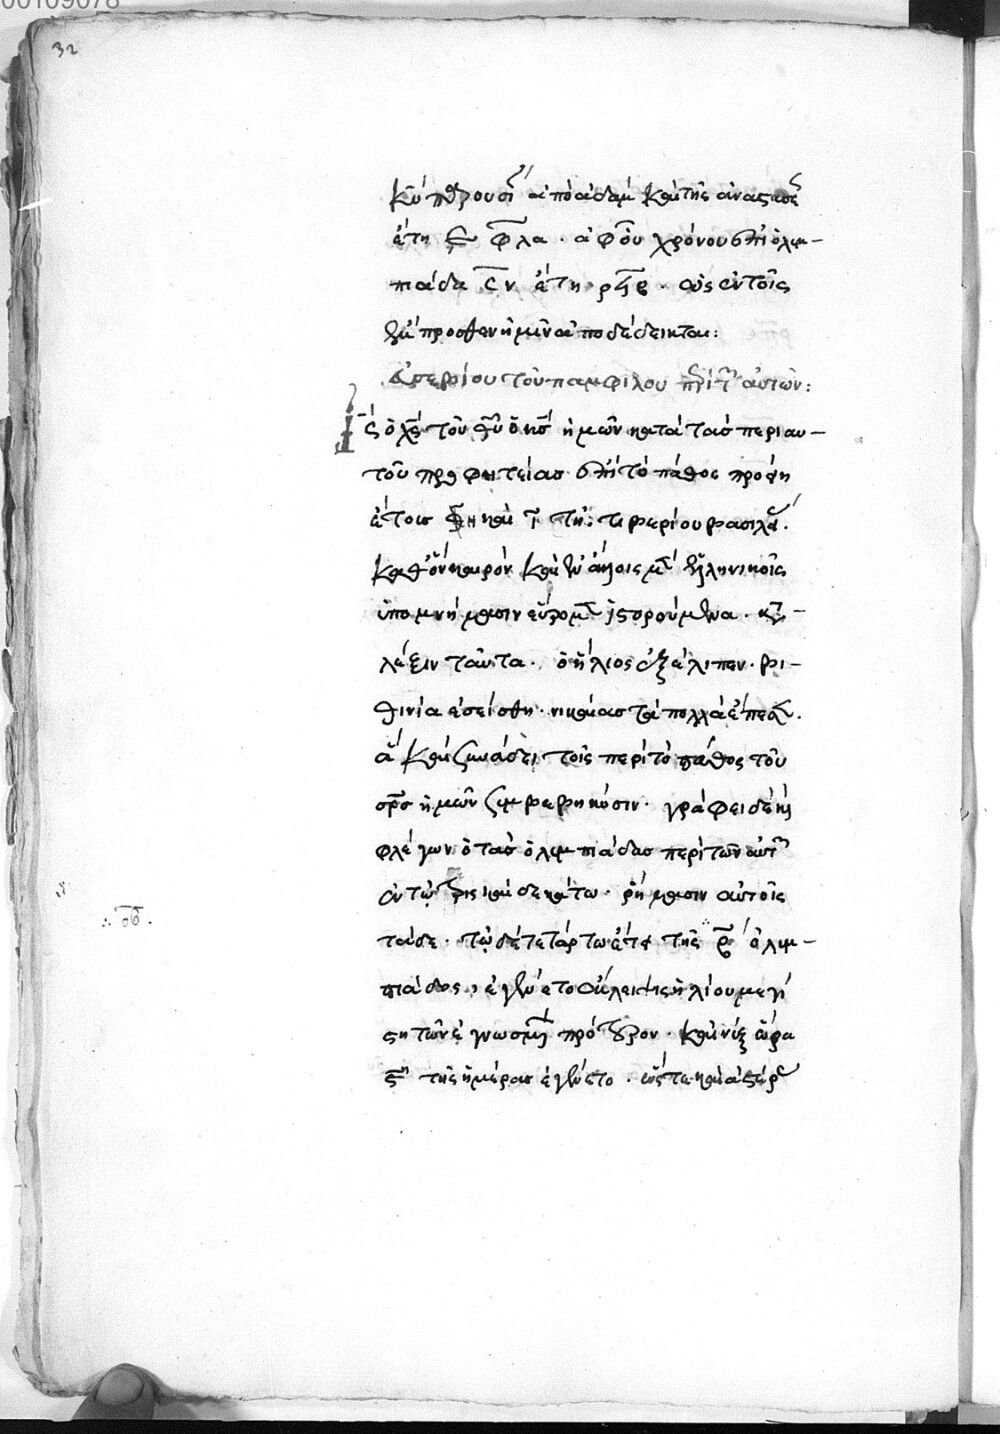 00109078
32
κυ πληρουσι ἀπὸ ἀδὰμ καὶ τῆς ἀναστάσε
ἔτη ͵ε φλα . ἀφ οὗ χρόνου ἐπὶ ὀλυμ-
πιάδα σν ἔτη ρϟβ . ὡς ἐν τοῖς
ἔμπροσθεν ἡμῖν ἀποδέδεικται :
εὐσεβίου τοῦ παμφίλου περὶ τῶν αὐτῶν :
Ις ὁ χς τοῦ θυ ὁ υς ἡμῶν κατὰ τὰς περὶ αυ-
τοῦ προφητείας ἐπὶ τὸ πάθος προῄη
ἔτους τῆς τιβερίου βασιλεί .
καθ ὃν καιρὸν καὶ ἐν ἄλλοις μὲν ἑλληνικοῖς
ὑπομνήμασιν εὕρομεν ἱστορούμενα . κατὰ
λέξιν ταῦτα . ὁ ἥλιος ἐξέλιπεν . βι-
θυνία ἐσείσθη . νικαίας τὰ πολλὰ ἔπεσεν .
ἃ καὶ συνάδει τοῖς περὶ τὸ πάθος τοῦ
σρσ ἡμῶν συμβεβηκόσιν . γράφει δὲ καὶ
φλέγων ὁ τὰς ὀλυμπιάδας περὶ τῶν αὐτῶν
ἐν τῷ τρισκαιδεκάτω . ῥήμασιν αὐτοῖς
τάδε . τῷ δὲ τετάρτω ἔτει τῆς ὀλυμ-
∴ σβ .
πιάδος , ἐγένετο ἔκλειψις ἡλίου μεγί
στη τῶν ἐγνωσμένων πρότερον . καὶ νὺξ ὥρα
ϛ τῆς ἡμέρας ἐγένετο . ὥστε καὶ ἀστέρας